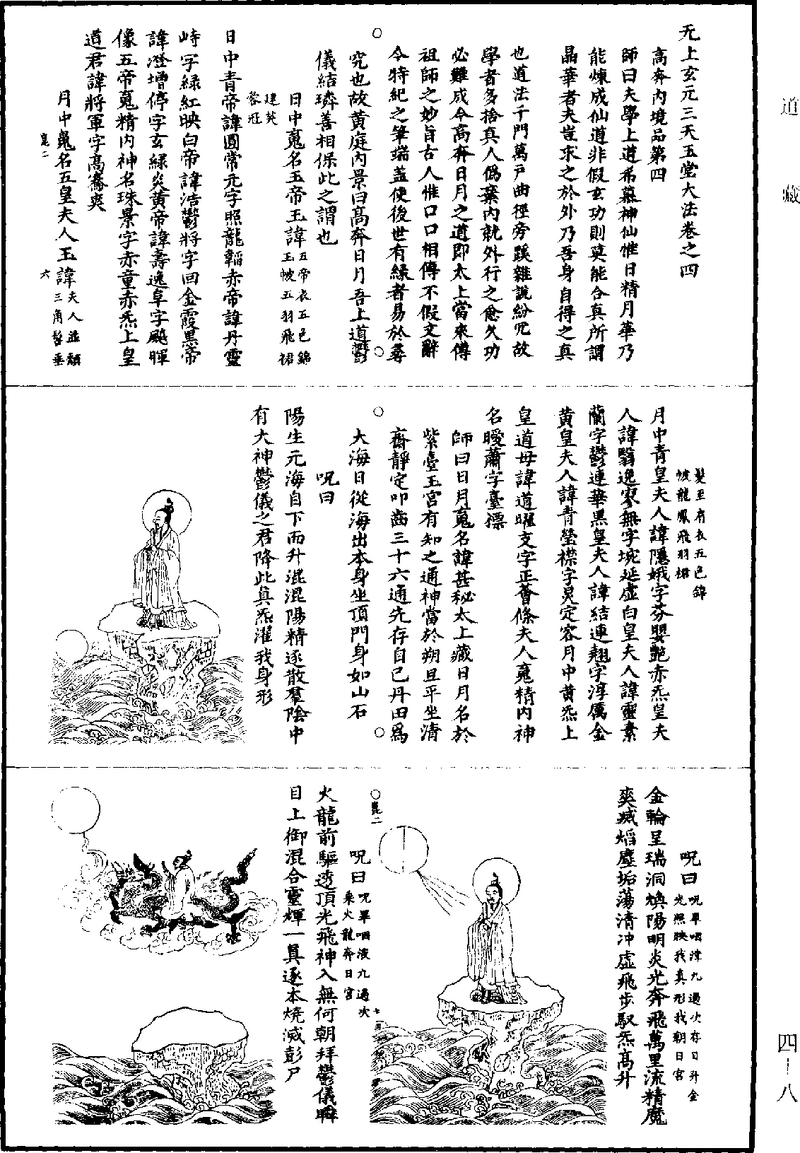 道藏
四－八
无上玄元三天玉堂大法卷之四
高奔內境品第四
師曰夫學上道希慕神仙惟日精月華乃
能煉成仙道非假玄功則莫能合真所謂
晶華者夫豈求之於外乃吾身自得之真
也道法千門萬戶曲徑旁蹊雜說紛冗故
學者多捨真人偽棄內就外行之愈久功
必難成今高奔日月之道即太上當來傳
祖師之妙旨古人惟口口相傳不假文辭
今特紀之筆端蓋使後世有緣者易於尋
究也故黃庭內景曰高奔日月吾上道鬱
儀結璘善相保此之謂也
日中䰟名玉帝王諱五帝衣五色錦
玉帔五羽飛裙
建芙
蓉冠
日中青帝諱圓常无字照龍韜赤帝諱丹靈
峙字綠紅映白帝諱浩鬱將字回金霞黑帝
諱澄增停字玄綠炎黃帝諱壽逸阜字飈暉
像五帝䰟精內神名珠景字赤童赤炁上皇
道君諱將軍字高騫爽
月中䰟名五皇夫人玉諱夫人並頹
六三角髻垂
髮至肩衣五色錦
帔龍鳳飛羽裙
月中青皇夫人諱隱娥字芬嬰艷赤炁皇夫
人諱翳逸寥無字婉延虛白皇夫人諱靈素
蘭字鬱連華黑皇夫人諱結連翹字淳厲金
黃皇夫人諱青瑩襟字炅定容月中黃炁上
皇道母諱道曜支字正薈條夫人䰟精內神
名曖蕭字臺標
師曰日月䰟名諱甚秘太上藏日月名於
紫臺玉宮有知之通神當於朔旦平坐清
齋靜定叩齒三十六通先存自己丹田為
大海日從海出本身坐頂門身如山石
呪曰
陽生元海自下而升混混陽精逐散羣陰中
有大神鬱儀之君降此真炁濯我身形
呪曰呪畢咽津九過次存日升金
光照映我真形我朝日宮
金輪呈瑞洞煥陽明炎光奔飛萬里流精魔
爽滅熖塵垢蕩清冲虛飛步馭炁高升
呪曰呪畢咽液九過次
乘火龍奔日宮
火龍前驅透頂光飛神入無何朝拜鬱儀瞬
目上御混合靈輝一真逐本燒滅彭尸